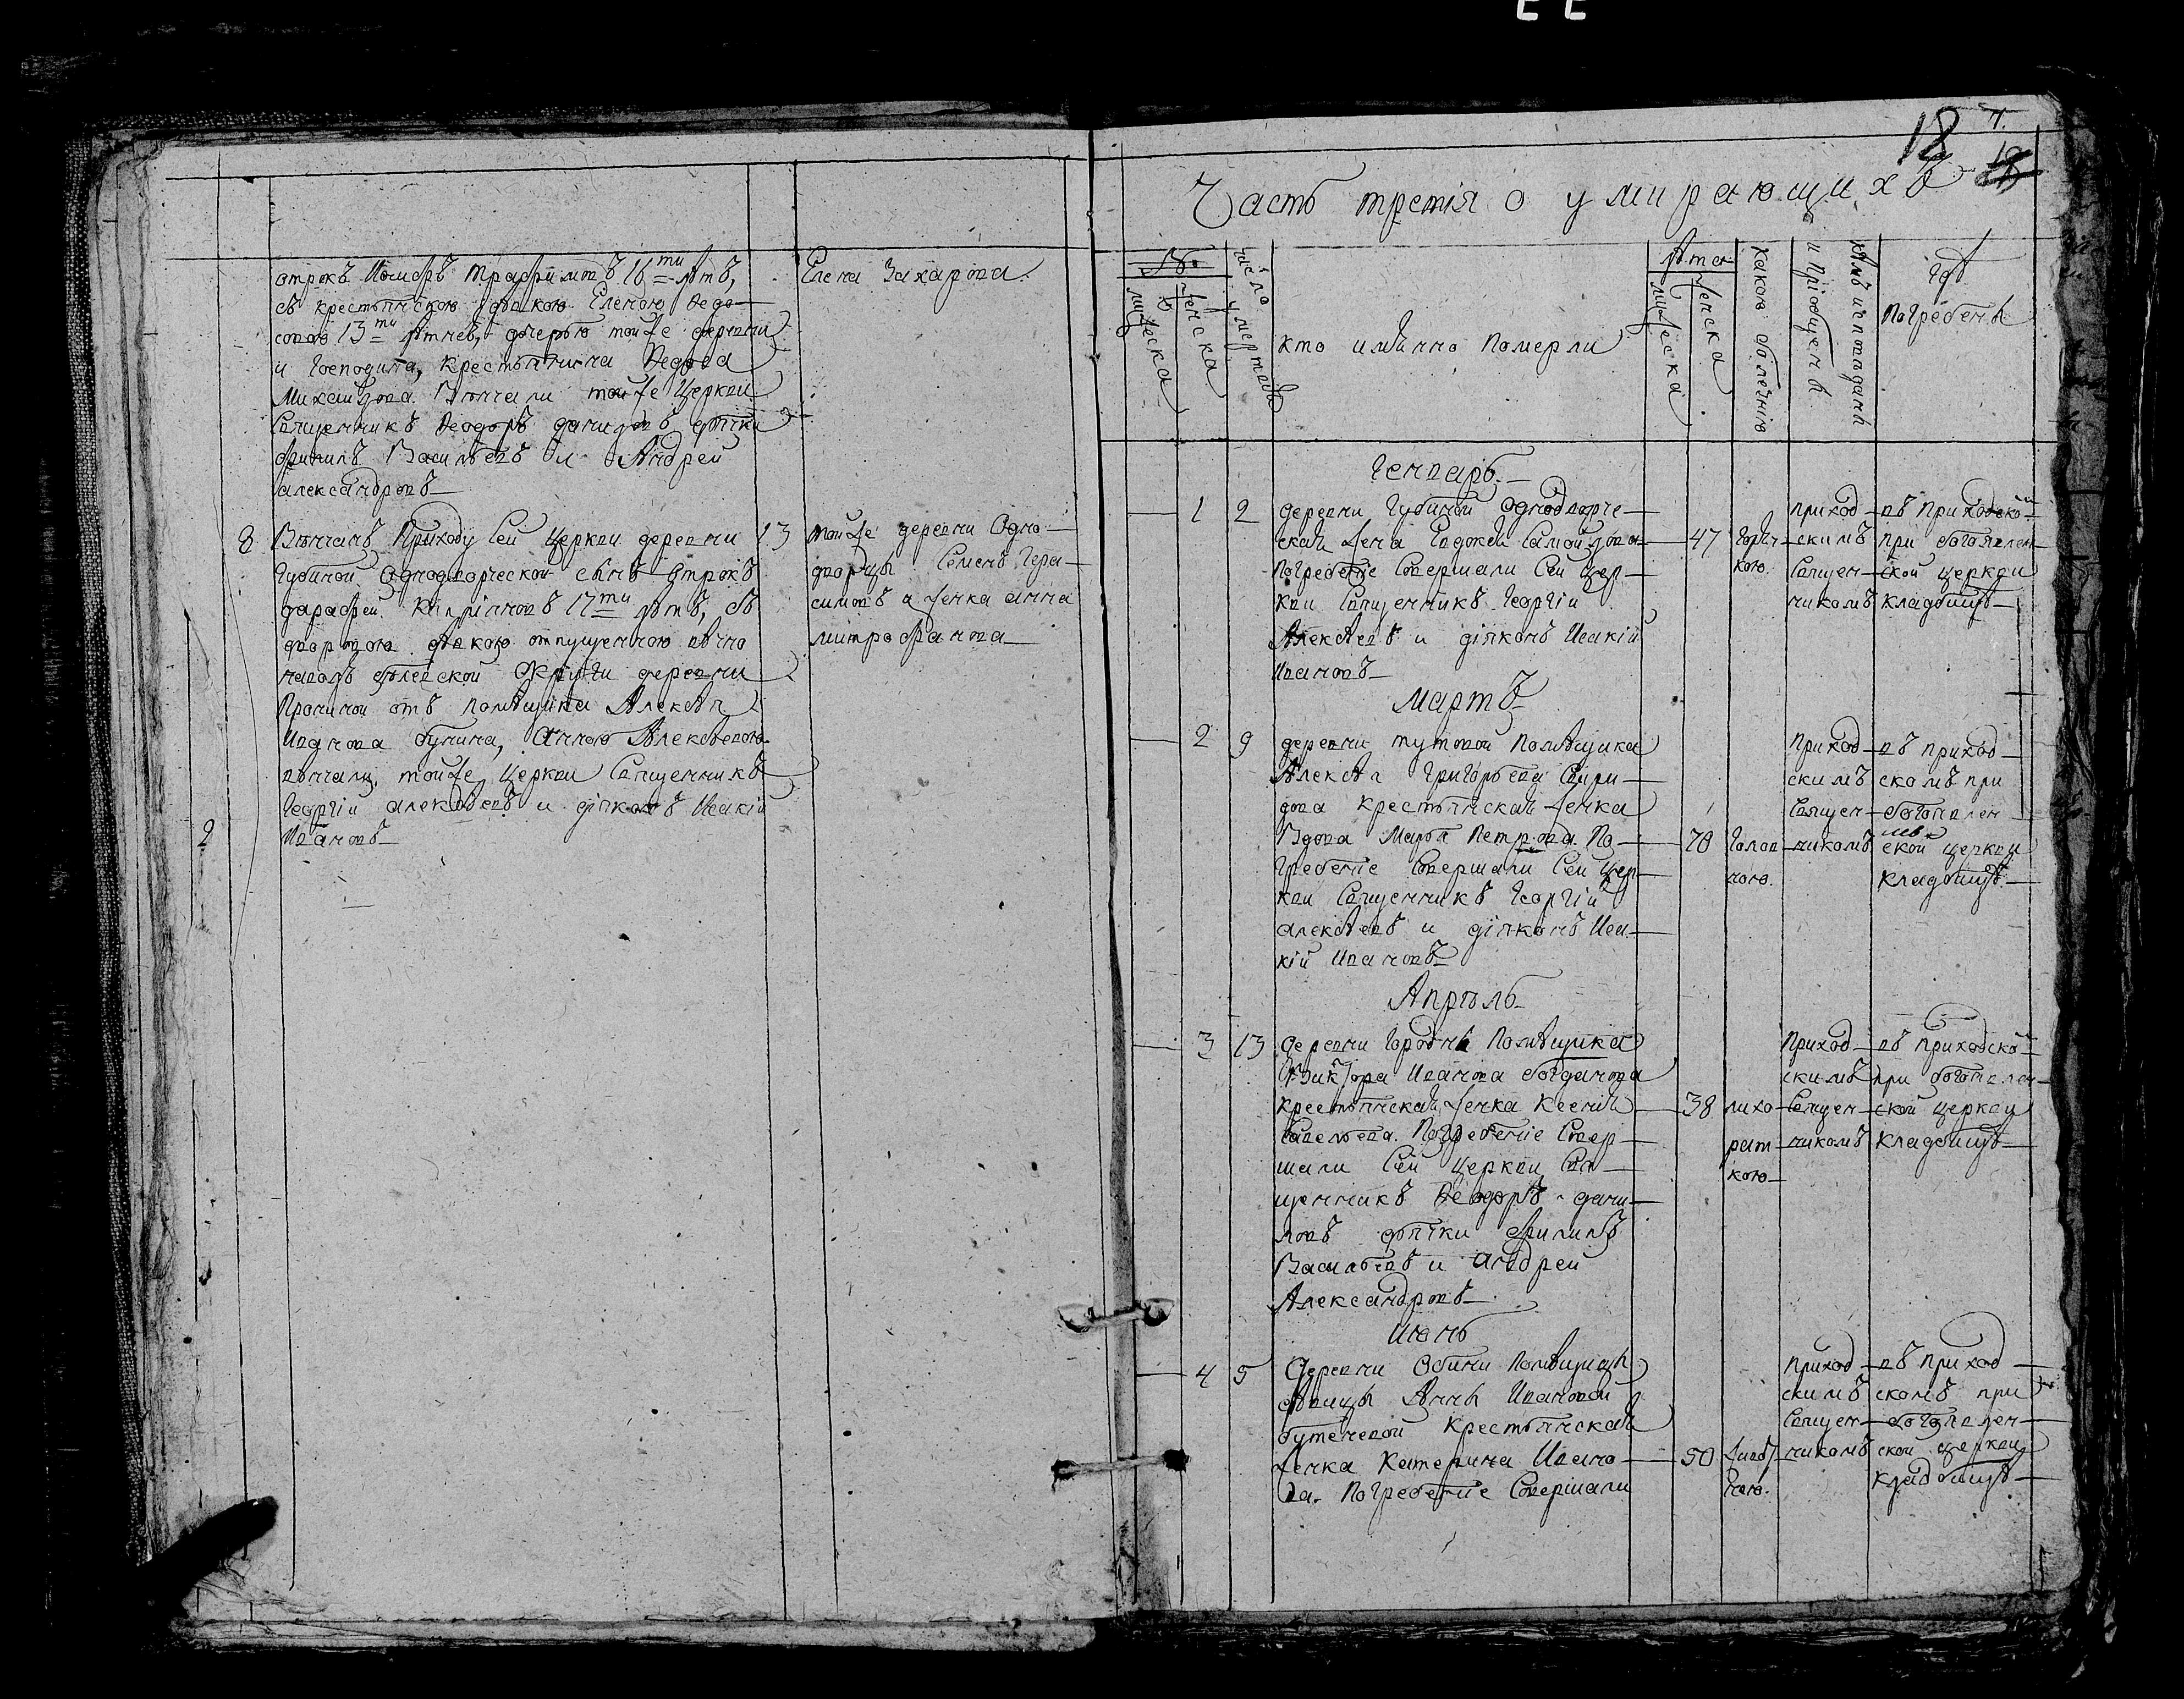 отрокъ Іосифъ Трафимовъ 16ти лѣтъ,
съ крестьянскою дѣвкою Еленою Ѳедо-
совою 13ти лѣтнею, дочерью тойже деревни
и Господина, крестьянина Ѳедоса
Михайлова. Вѣнчали тойже Церкви
Священникъ Ѳеодоръ данилов дьячки
Филипъ Васильевъ и Андрей
александровъ
Елена Захарова.
8 Вѣнчанъ Приходу Сей Церкви деревни
Губиной Однодворческой сынъ Отрокъ
дарафей Кипріяновъ 17ти лѣтъ, съ
дворовою дѣвкою отпущенною вѣчно
на волю Бѣлевской Округи деревни
Пронино отъ помѣщика Алексѣя
Иванова бунина, Анною Алексѣевою
вѣнчали, тойже Церкви Священникъ
Георгій алексѣевъ и діяконъ Исакій
2 Ивановъ
13 тойже деревни Одно-
дворцы Семенъ Гера-
симовъ и женка анна
митрофанова
18
Часть третія о умирающихъ
№
мужеска
женска
число умертвія
кто имянно померли
Лѣта
мужеска
женска
какою болѣзнію
кѣмъ исповѣданы
и пріобщены
гдѣ
погребены
Генварь
1 2 деревни Губиной Однодворче-
ская жена Евдокея Самойлова
Погребеніе Совершали Сей Цер-
кви Священникъ Георгіи
Алексѣевъ и діяконъ Исакій
Ивановъ
47 Горяч-
кою.
приход-
скимъ
Священ-
никомъ
въ Приходской
при богоявлен-
ской церкви
кладбищѣ
Мартъ
2 9 деревни тутовой Помѣщика
Алексѣя Григорьева Свири-
дова крестьянская женка
Вдова Марѳа Петрова. По-
гребеніе Совершали Сей Цер-
кви Священникъ Георгіи
алексѣевъ и діяконъ Иса-
кій Ивановъ
70 Голов-
ною.
Приход-
скимъ
Священ-
никомъ
въ приход-
скомъ при
богоявлен
ской церкви
кладбищѣ
Апрѣль
3 13 деревни Городны Помѣщика
Виктора Иванова богданова
Крестьянская женка Ксенія
Савельева. Погребеніе Совер-
шали Сей Церкви Свя-
щенникъ Ѳеодоръ дани-
ловъ дьячки Филипъ
Васильевъ и андрей
Александровъ
38 лихо-
рат-
кою
Приход-
скимъ
Священ-
никомъ
въ Приходской
при богоявлен-
ской церкви
кладбищѣ
Июнь
4 5 Деревни Помѣщицы
дѣвицы Анны Ивановой
бутеневой Крестьянская
женка Катерина Ивано-
ва. Погребеніе Совершали
50
Приход-
скимъ
Священ-
никомъ
въ Приход-
скомъ при
богоявлен-
ской церкви
кладбищѣ